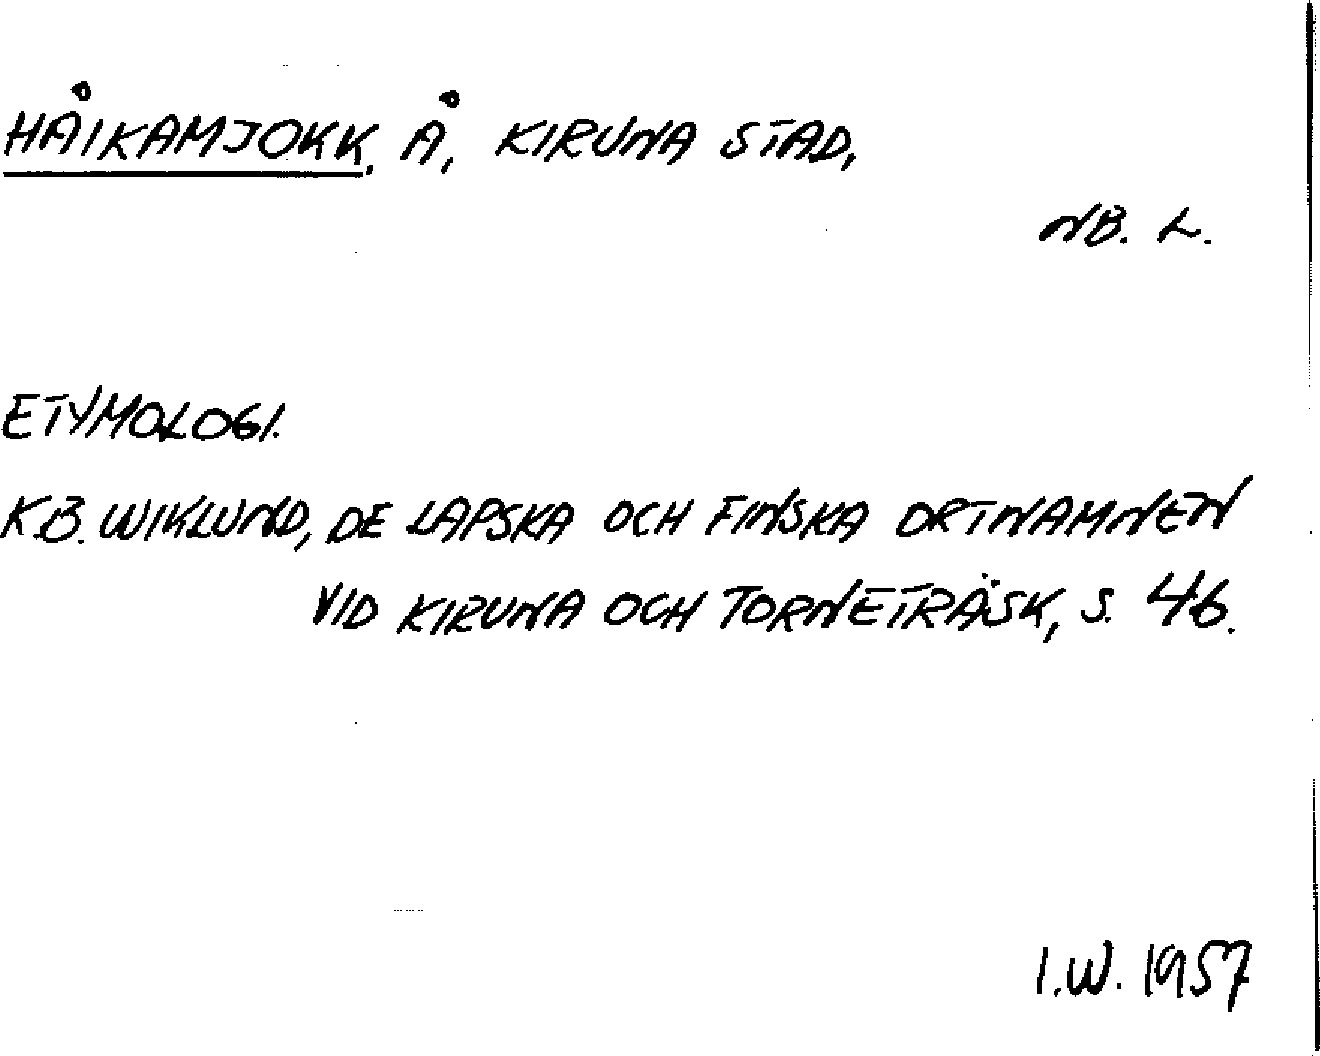 HÅIKAMJOKK, Å, KIRUNA STAD,
NB. L.
ETYMOLOGI.
K.B. WIKLUND, DE LAPSKA OCH FINSKA ORTNAMNEN
VID KIRUNA OCH TORNETRÄSK, S. 46.
I.W. 1957